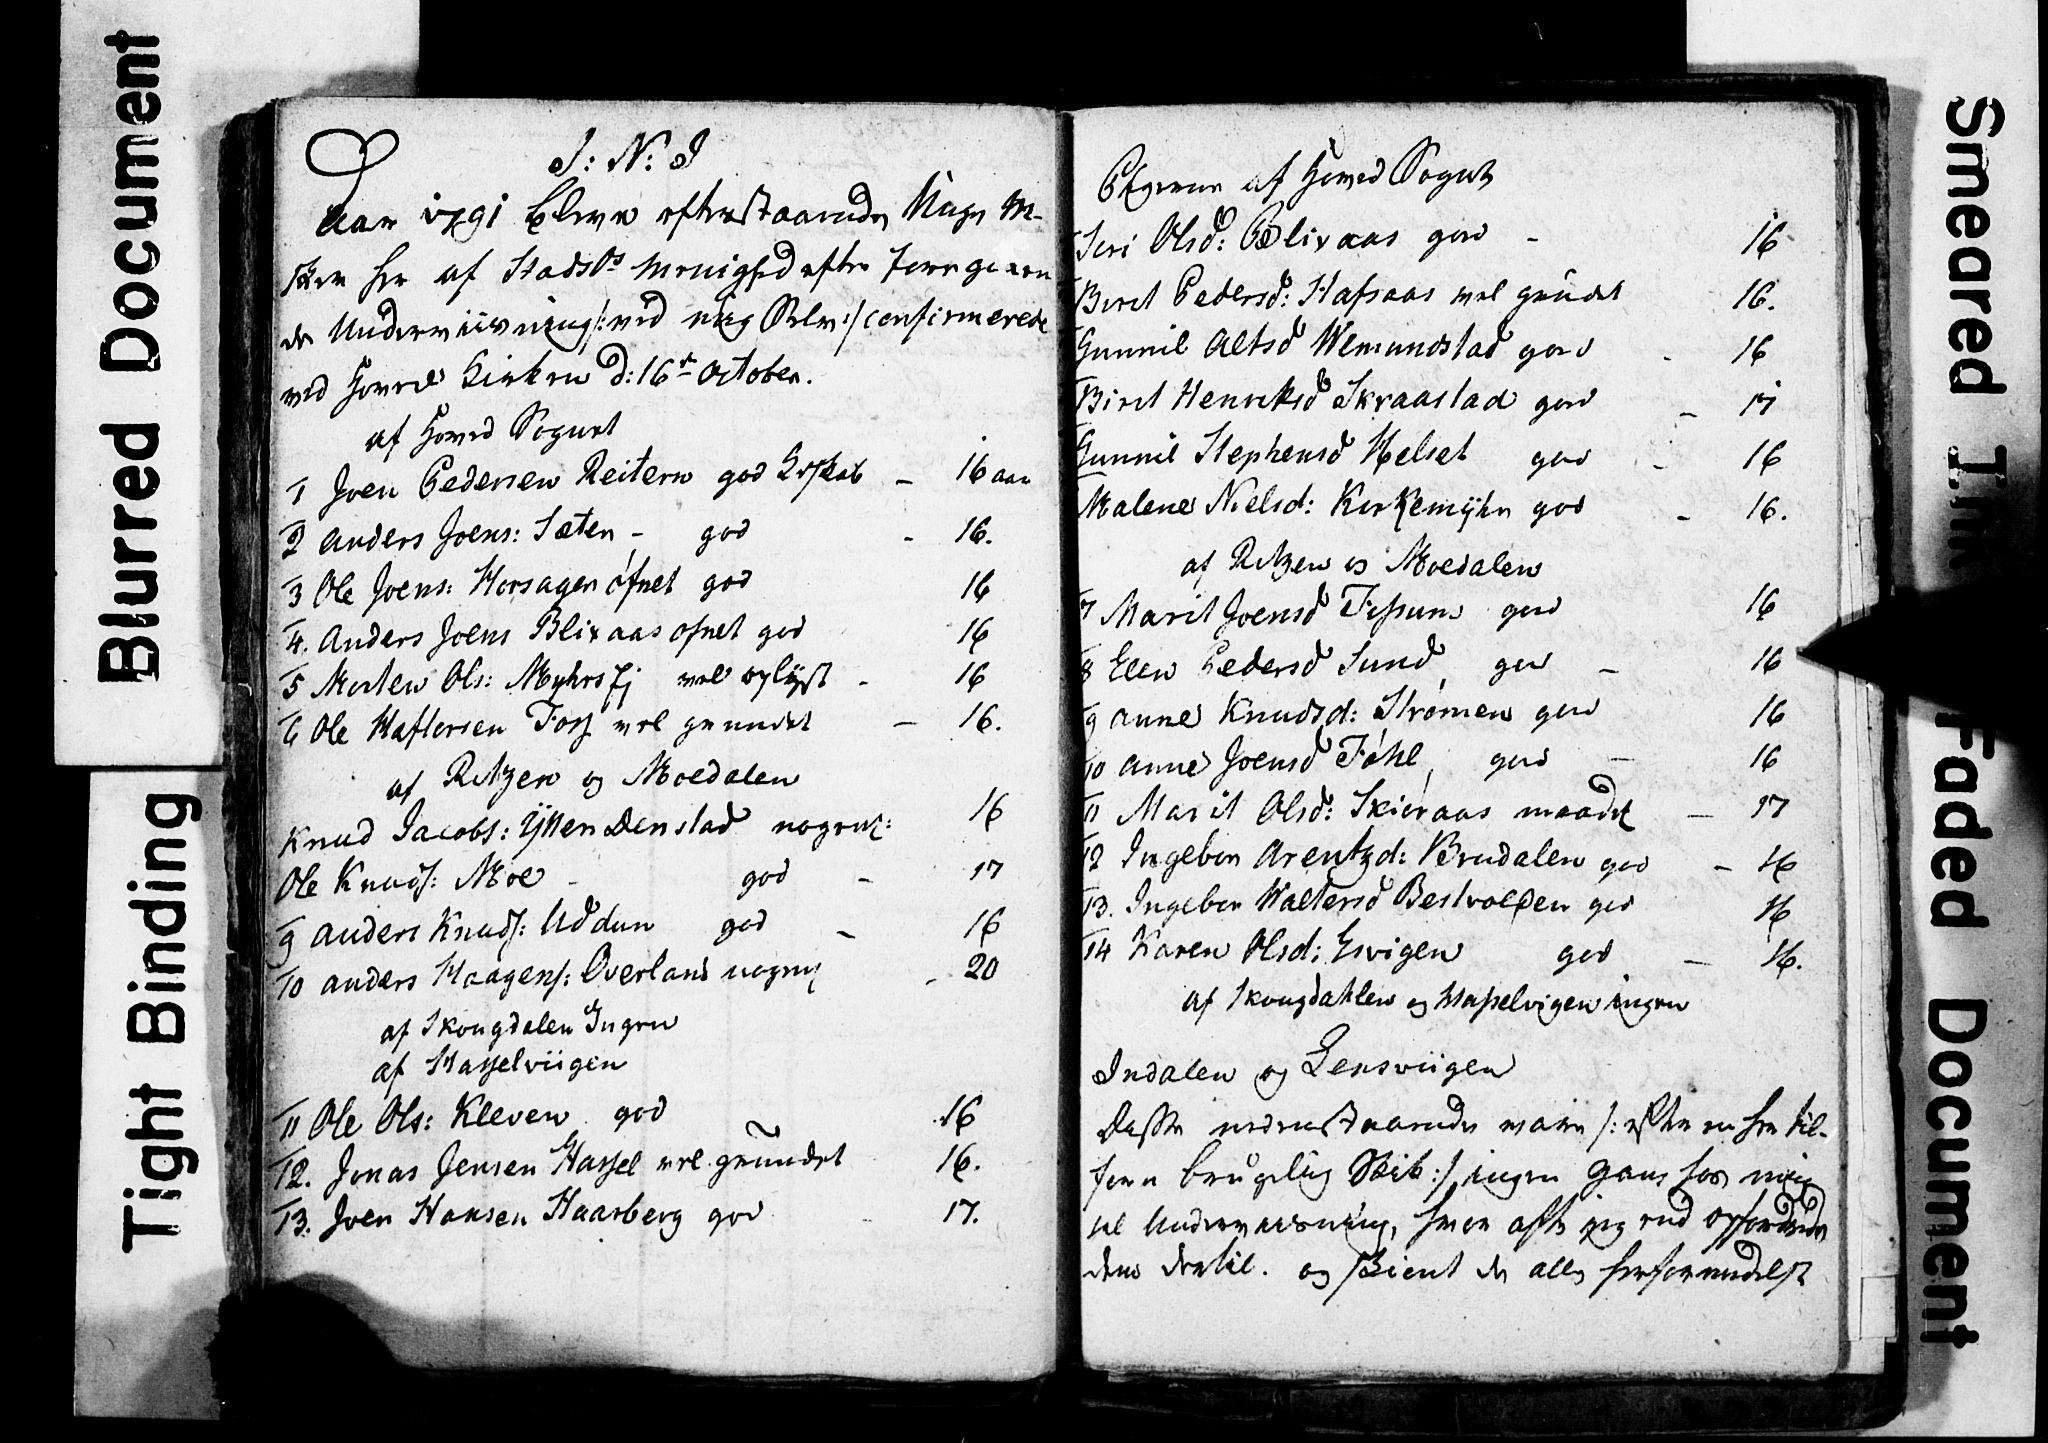 Blurred Document
Tight Binding
J: N: J
Aar 1791 bleve efterstaaende Unge M-
sker her af Stadsbs Menighed efter foregaaen
de Underviisning /: ved mig Selv :/ confirmerede
ved Hoved Kirken d: 16de October.
af Hoved Sognet
1 Joen Pedersen Reitern god Kskab - 16 aar
2 Anders Joens: Sæter - god - 16.
3 Ole Joens: Horsagen ofnet god 16
4. Anders Joens Blixaas ofnet god 16
5 Morten Ols: Myhrs Ej vel oplyst - 16
6 Ole Haftorsen Foss vel grundet - 16.
af Ritzen og Moedalen
Knud Jacobs: Ytter Denstad nogenl: 16
Ole Knuds: Moe - god - 17
9 Anders Knuds: Uddun god - 16
10 Anders Haagens: Overland nogenl - 20
af Skougdalen Ingen
af Hasselviigen
11 Ole Ols: Kleven god 16
12. Jonas Jensen Hassel vel grundet 16.
13. Joen Hansen Haarberg god - 17.
Pigerne af Hoved Sognet
Seri Olsd: Blixaas god - 16
Beret Pedersd: Hafsaas vel grundet 16.
Gunnil Altsd Wemundstad god - 16
Beret Henriksd Skraastad god - 17
Gunnil Stephensd Helset god - 16
Malene Nielsd: Kirkemyhr god - 16.
af Ritzen og Moedalen
7 Marit Joensd Fissum god 16
8 Elen Pedersd Sund god - 16
9 Anne Knudsd: Strømen god 16
10 Anne Joensd Føhl, god - 16
11 Marit Olsd: Skieraas maadel - 17
12 Ingebor Arentzd: Brudalen god - 16
13. Ingebor Waltersd Bestvolden god 16
14 Karen Olsd: Esvigen god - 16.
af Skougdahlen og Hasselvigen ingen
Indalen og Lensviigen
Disse nedenstaaende vare /: efter en her til-
forn brugelig Skik :/ ingen Gang hos mig
til Underviisning, hvor ofte jeg end opfordrede
dem dertil. og skiønt de alle
Smeared Ink
Faded Document